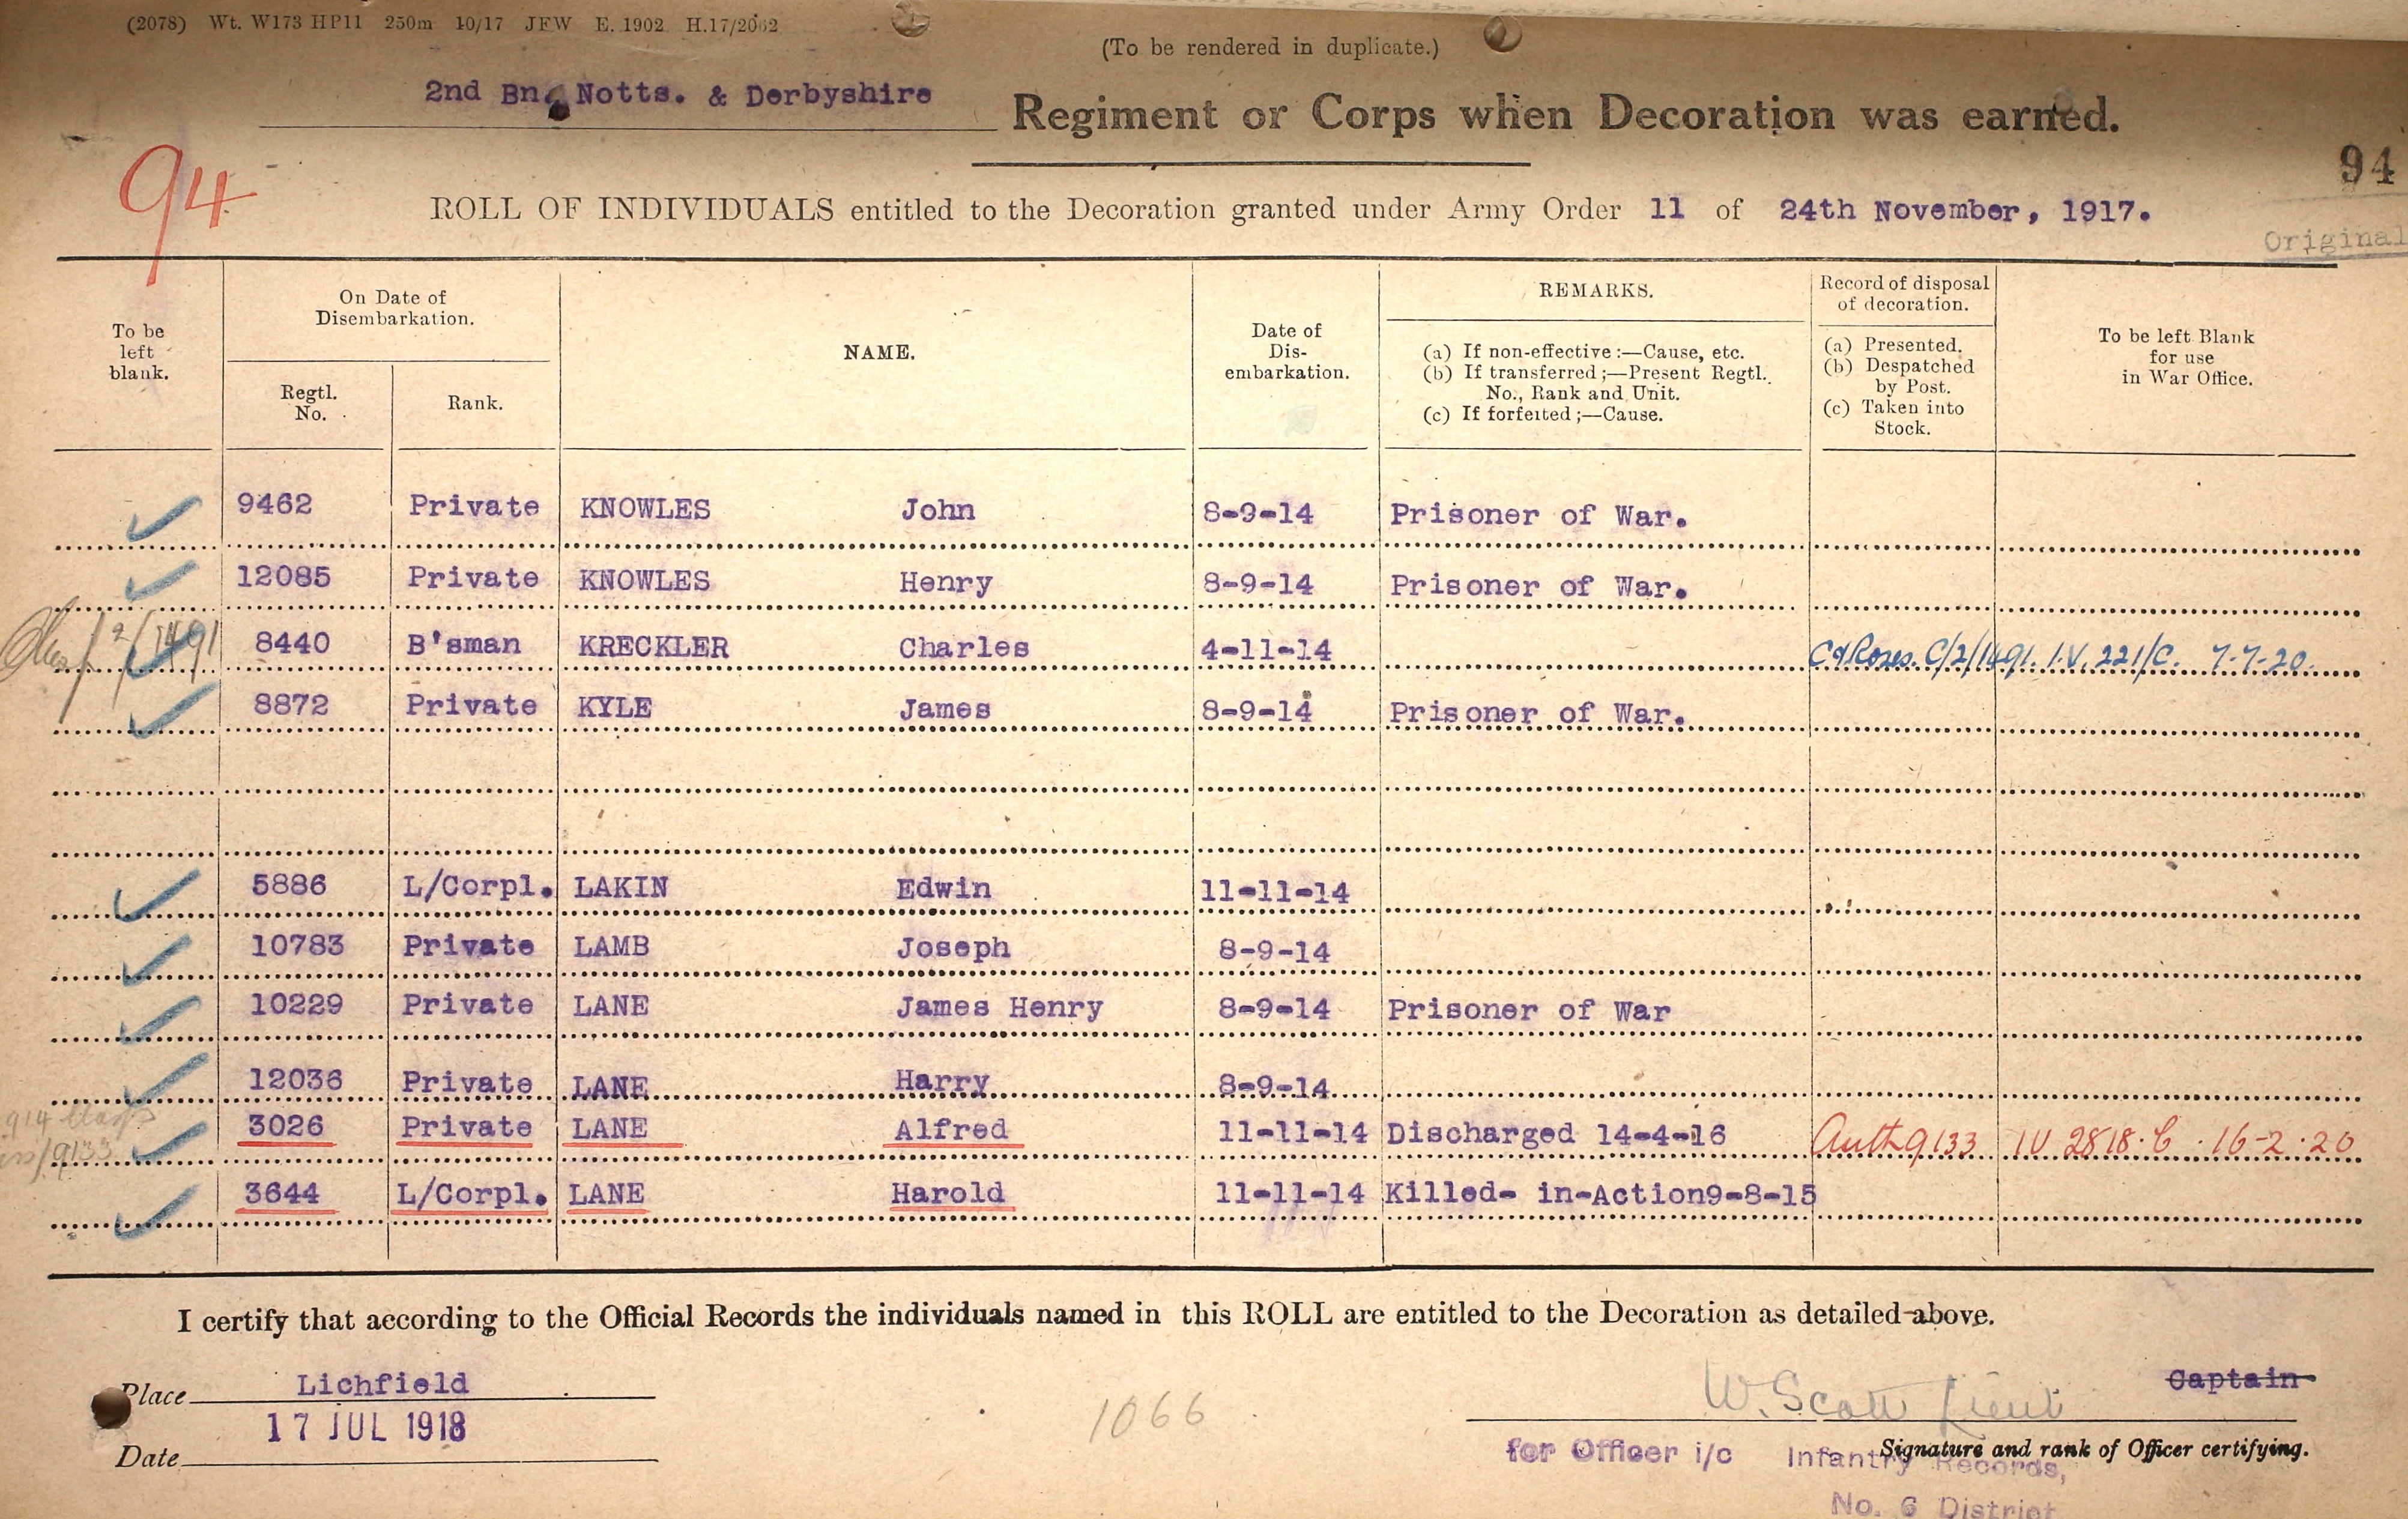 (2078) Wt. W173 HP11 250m 10/17 JFW E. 1902 H.17/2062
(To be rendered in duplicate.)
2nd Bn. Notts. & Derbyshire Regiment or Corps when Decoration was earned.
94
94
ROLL OF INDIVIDUALS entitled to the Decoration granted under Army Order 11 of 24th November, 1917.
Original
To be left blank.
On Date of Disembarkation.
Regtl. No.
Rank.
NAME.
Date of Dis-embarkation.
REMARKS.
(a) If non-effective :—Cause, etc.
(b) If transferred ;—Present Regtl. No., Rank and Unit.
(c) If forfeited ;—Cause.
Record of disposal of decoration.
(a) Presented.
(b) Despatched by Post.
(c) Taken into Stock.
To be left Blank for use in War Office.
9462 Private KNOWLES John 8-9-14 Prisoner of War.
12085 Private KNOWLES Henry 8-9-14 Prisoner of War.
2/1491 8440 B'sman KRECKLER Charles 4-11-14 C & Roses. C/2/1491. I.V. 221/C. 7-7-20.
8872 Private KYLE James 8-9-14 Prisoner of War.
5886 L/Corpl. LAKIN Edwin 11-11-14
10783 Private LAMB Joseph 8-9-14
10229 Private LANE James Henry 8-9-14 Prisoner of War
12036 Private LANE Harry 8-9-14
914 Clasp
/9133 3026 Private LANE Alfred 11-11-14 Discharged 14-4-16 Auth 9133 IV 2818.C. 16-2-20
3644 L/Corpl. LANE Harold 11-11-14 Killed- in-Action9-8-15
I certify that according to the Official Records the individuals named in this ROLL are entitled to the Decoration as detailed above.
Place Lichfield
Date 17 JUL 1918
1066
W. Scott Lieut Captain
Signature and rank of Officer certifying.
for Officer i/c Infantry Records,
No. 6 District